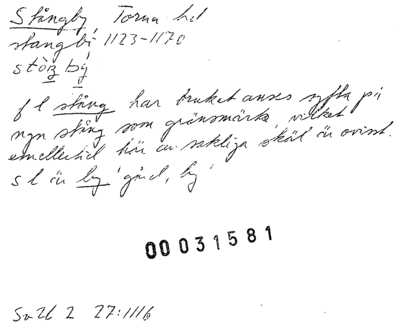 Stångby Torna hd
stangbi 1123-1170
stöŋ by
f l stång har brukat anses syfta på
ngn stång som gränsmärke, vilket
emellertid här av sakliga skäl är ovisst.
s l är by 'gård, by'
00031581
SvUb 2 27:1116